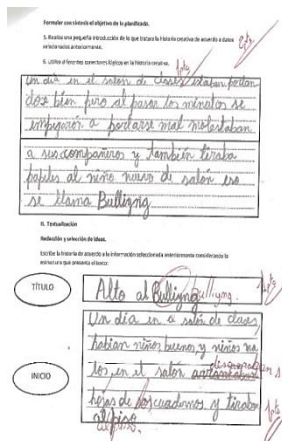 Formular con síntesis el objetivo de lo planificado.
5. Realiza una pequeña introducción de lo que tratara la historia creativa de acuerdo a datos
seleccionados anteriormente.
6. Utiliza diferentes conectores lógicos en la historia creativa. 1pto
Un día en el salon de clases estaban portan
dose bien pero al pasar los minutos se
empezarón a portarse mal molestaban
a sus compañeros y también tiraba
papeles al niño nuevo de salón eso
se llama Bulliyng
II. Textualización
Redacción y selección de ideas.
Escribe la historia de acuerdo a la información seleccionada anteriormente considerando la
estructura que presenta el texto:
TÍTULO
Alto al Bulliyng
INICIO
Un día en a salón de clases
habian niños buenos y niños ma
los en el salón
hojas de los cuadernos y tiraban
al piso.